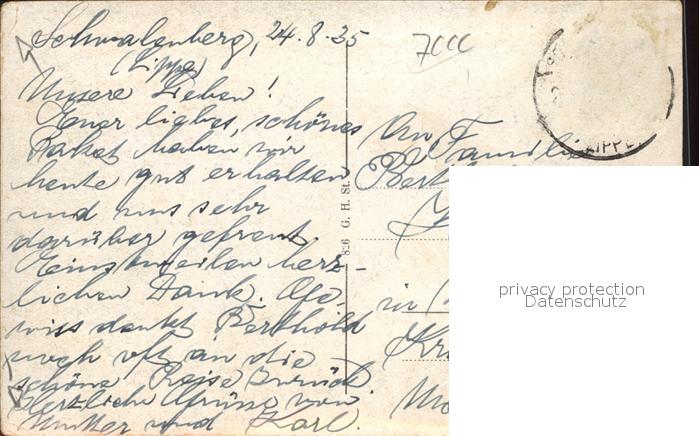 Schwalenberg, 24.8.35
(Lippe)
Unsere Lieben!
Euer liebes, schönes
Paket haben wir
heute gut erhalten
und uns sehr
darüber gefreut
Einstweilen herz-
lichen Dank. Ge-
wiss denkt Berthold
noch oft an die
schöne Reise zurück.
Herzliche Grüsse von
Mutter und Karl.
826 G. H. St.
An Familie
in
LIPPE
privacy protection
Datenschutz